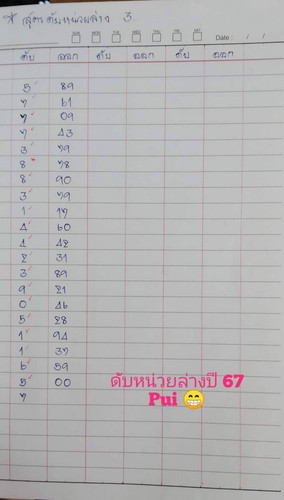 * สูตร ดับหน่วยล่าง 3
SUN MON TUE WED THU FRI SAT Date : / /
ดับ ออก ดับ ออก ดับ ออก
5 89
7 61
7 09
7 43
3 79
8 78
8 90
3 79
1 17
4 60
42
2 31
3 89
9 21
0 46
5 28
1 94
1 37
6 59
5 00
7
ดับหน่วยล่างปี 67
Pui 😁